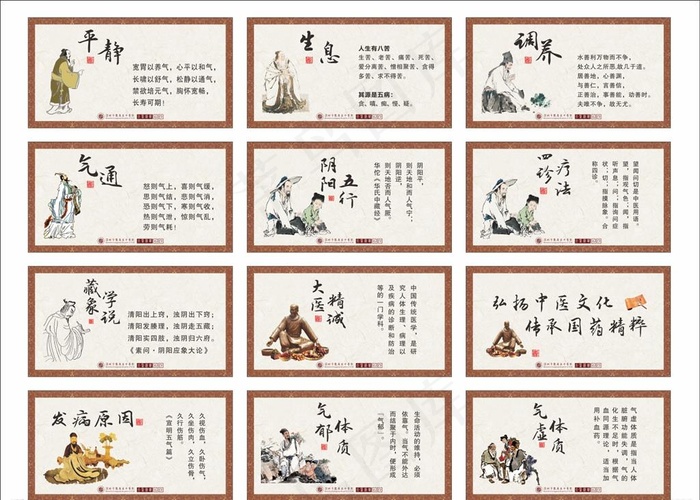 平静
宽胃以养气，心平以和气，
长啸以舒气，松静以通气，
禁欲培元气，胸怀宽畅，
长寿可期！
生息
人生有八苦
生苦、老苦、痛苦、死苦、
爱分离苦、憎相聚苦、贪得
多苦、求不得苦。
其源是五病：
贪，嗔，痴，慢，疑。
调养
水善利万物而不争，
处众人之所恶，故几于道。
居善地，心善渊，
与善仁，言善信，
正善治，事善能，动善时。
夫唯不争，故无尤。
气通
怒则气上， 喜则气缓
思则气结， 悲则气消，
恐则气下， 寒则气收，
热则气泄， 惊则气乱，
劳则气耗！
阴阳五行
阴阳平，
则天地和而人气宁，
阴阳逆，
则天地否而人气厥。
华佗《华氏中藏经》
四诊疗法
望闻问切是中医用语。
望，指观气色；闻，指
听声息；问；指询问症
状；切；指摸脉象。合
称四诊。
藏象学说
清阳出上窍，浊阴出下窍；
清阳发腠理，浊阴走五藏；
清阳实四肢，浊阴归六府。
《素问·阴阳应象大论》
大医精诚
中国传统医学，是研
究人体生理、病理以
及疾病的诊断和防治
等的一门学科。
弘扬中医文化
传承国药精粹
发病原因
久视伤血，久卧伤气，
久坐伤肉，久立伤骨，
久行伤筋。
《宣明五气篇》
气郁体质
生命活动的维持，必须
依靠气。当气不能外达
而结聚于内时，便形成
“气郁”。
气虚体质
气虚体质是指当人体
脏腑功能失调，气的
化生不足时，根据气
血同源理论，适当加
用补血药。